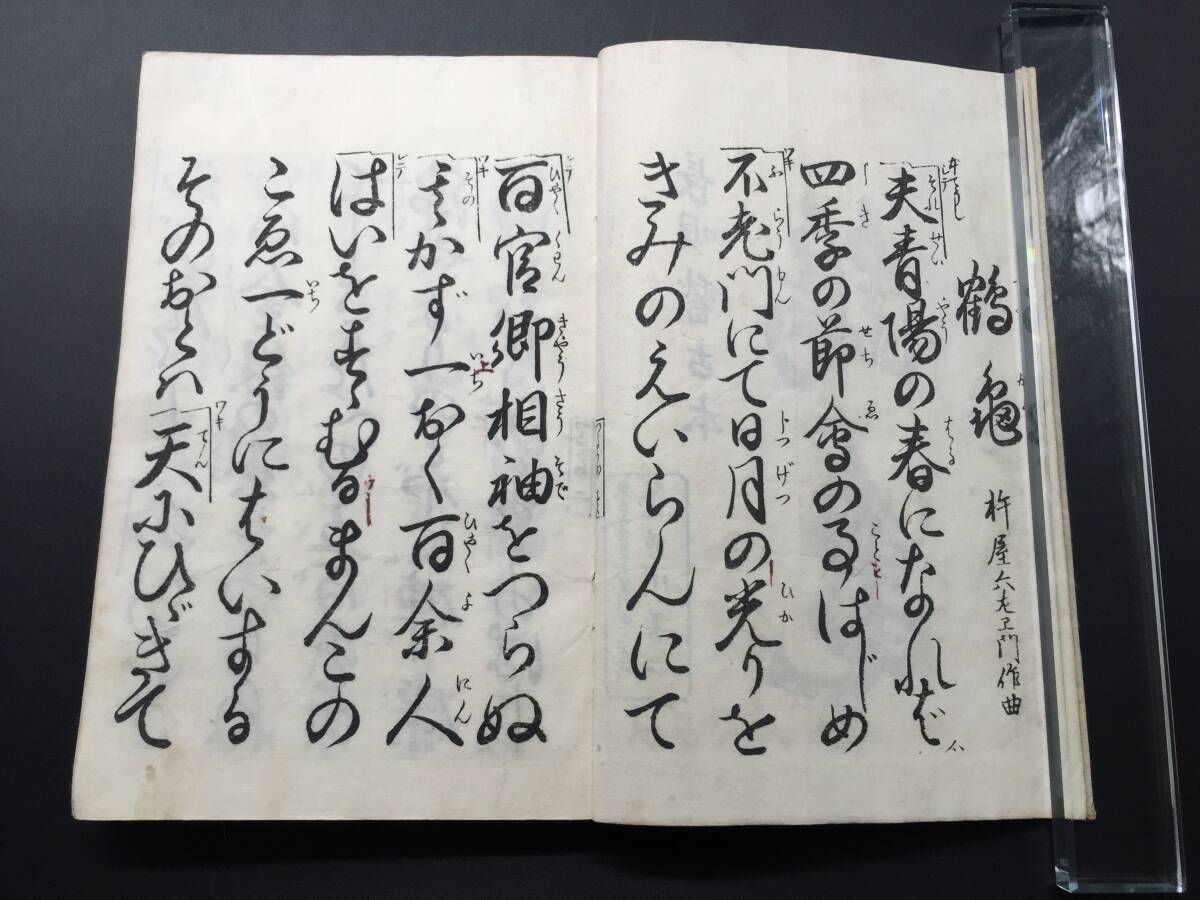 鶴亀
杵屋六左エ門作曲
夫青陽の春になれば
四季の節會の事はじめ
不老門にて日月の光りを
きみのえいらんにて
百官卿相袖をつらぬ
其かず一おく百余人
はいをすゝむるまんこの
こゑ一どうにはいする
そのおとハ天にひゞきて